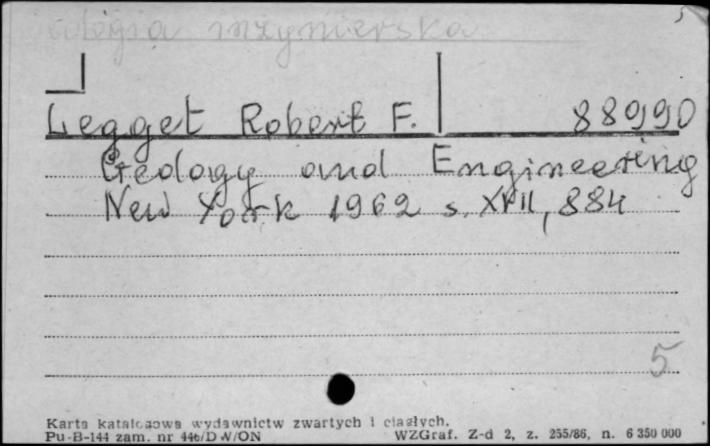 5
geologia inżynierska
Legget Robert F. 88990
Geology and Engineering
New York 1962 s. XVII, 884
5
Karta katalogowa wydawnictw zwartych i ciągłych.
Pu-B-144 zam. nr 446/D W/ON WZGraf. Z-d 2, z. 255/86, n. 6 350 000